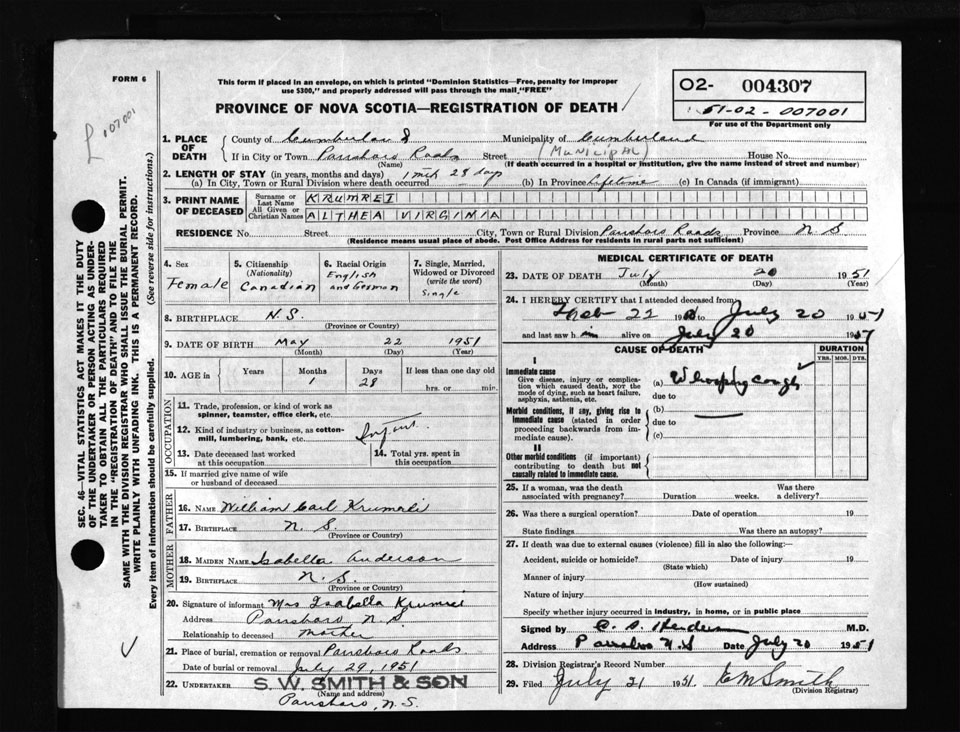 FORM 6
This form if placed in an envelope, on which is printed "Dominion Statistics—Free, penalty for improper
use $300," and properly addressed will pass through the mail "FREE"
PROVINCE OF NOVA SCOTIA—REGISTRATION OF DEATH
02- 004307
51-02-007001
For use of the Department only
007001
SEC. 46—VITAL STATISTICS ACT MAKES IT THE DUTY
OF THE UNDERTAKER OR PERSON ACTING AS UNDER-
TAKER TO OBTAIN ALL THE PARTICULARS REQUIRED
IN THE "REGISTRATION OF DEATH" AND TO FILE THE
SAME WITH THE DIVISION REGISTRAR WHO SHALL ISSUE THE BURIAL PERMIT.
WRITE PLAINLY WITH UNFADING INK. THIS IS A PERMANENT RECORD.
Every item of information should be carefully supplied. (See reverse side for instructions.)
1. PLACE OF DEATH
County of Cumberland Municipality of Cumberland
If in City or Town Parrsboro Roads Street (MUNICIPAL) House No.
(Name) (If death occurred in a hospital or institution, give the name instead of street and number)
2. LENGTH OF STAY (in years, months and days) 1 mth 28 days
(a) In City, Town or Rural Division where death occurred (b) In Province Lifetime (c) In Canada (if immigrant)
3. PRINT NAME OF DECEASED
Surname or Last Name KRUMREI
All Given or Christian Names ALTHEA VIRGINIA
RESIDENCE No. Street City, Town or Rural Division Parrsboro Roads Province N.S.
(Residence means usual place of abode. Post Office Address for residents in rural parts not sufficient)
4. Sex Female
5. Citizenship (Nationality) Canadian
6. Racial Origin English and German
7. Single, Married, Widowed or Divorced (write the word) Single
8. BIRTHPLACE N.S.
(Province or Country)
9. DATE OF BIRTH May 22 1951
(Month) (Day) (Year)
10. AGE in Years Months 1 Days 28 If less than one day old hrs. or min.
OCCUPATION
11. Trade, profession, or kind of work as
spinner, teamster, office clerk, etc.
12. Kind of industry or business, as cotton-
mill, lumbering, bank, etc. Infant
13. Date deceased last worked
at this occupation
14. Total yrs. spent in
this occupation
15. If married give name of wife
or husband of deceased
FATHER
16. NAME William Carl Krumrei
17. BIRTHPLACE N.S.
(Province or Country)
MOTHER
18. MAIDEN NAME Isabella Anderson
19. BIRTHPLACE N.S.
(Province or Country)
20. Signature of informant Mrs Isabella Krumrei
Address Parrsboro N.S
Relationship to deceased mother
21. Place of burial, cremation or removal Parrsboro Roads
Date of burial or removal July 29, 1951
22. UNDERTAKER S. W. SMITH & SON
(Name and address)
Parrsboro, N.S.
MEDICAL CERTIFICATE OF DEATH
23. DATE OF DEATH July 20 1951
(Month) (Day) (Year)
24. I HEREBY CERTIFY that I attended deceased from
22 19 to July 20 1951
and last saw h alive on July 20 19
CAUSE OF DEATH
DURATION
YRS. MOS. DYS.
I
Immediate cause
Give disease, injury or complica-
tion which caused death, NOT the
mode of dying, such as heart failure,
asphyxia, asthenia, etc.
(a) Whooping cough
due to
Morbid conditions, if any, giving rise to
immediate cause (stated in order
proceeding backwards from im-
mediate cause).
(b)
due to
(c)
II
Other morbid conditions (if important)
contributing to death but not
causally related to immediate cause.
25. If a woman, was the death
associated with pregnancy? Duration weeks. Was there a delivery?
26. Was there a surgical operation? Date of operation 19
State findings Was there an autopsy?
27. If death was due to external causes (violence) fill in also the following:—
Accident, suicide or homicide? Date of injury 19
(State which)
Manner of injury
(How sustained)
Nature of injury
Specify whether injury occurred in industry, in home, or in public place
Signed by Henderson M.D.
Address Parrsboro N.S Date July 20 1951
28. Division Registrar's Record Number
29. Filed July 21 1951. Smith
(Division Registrar)